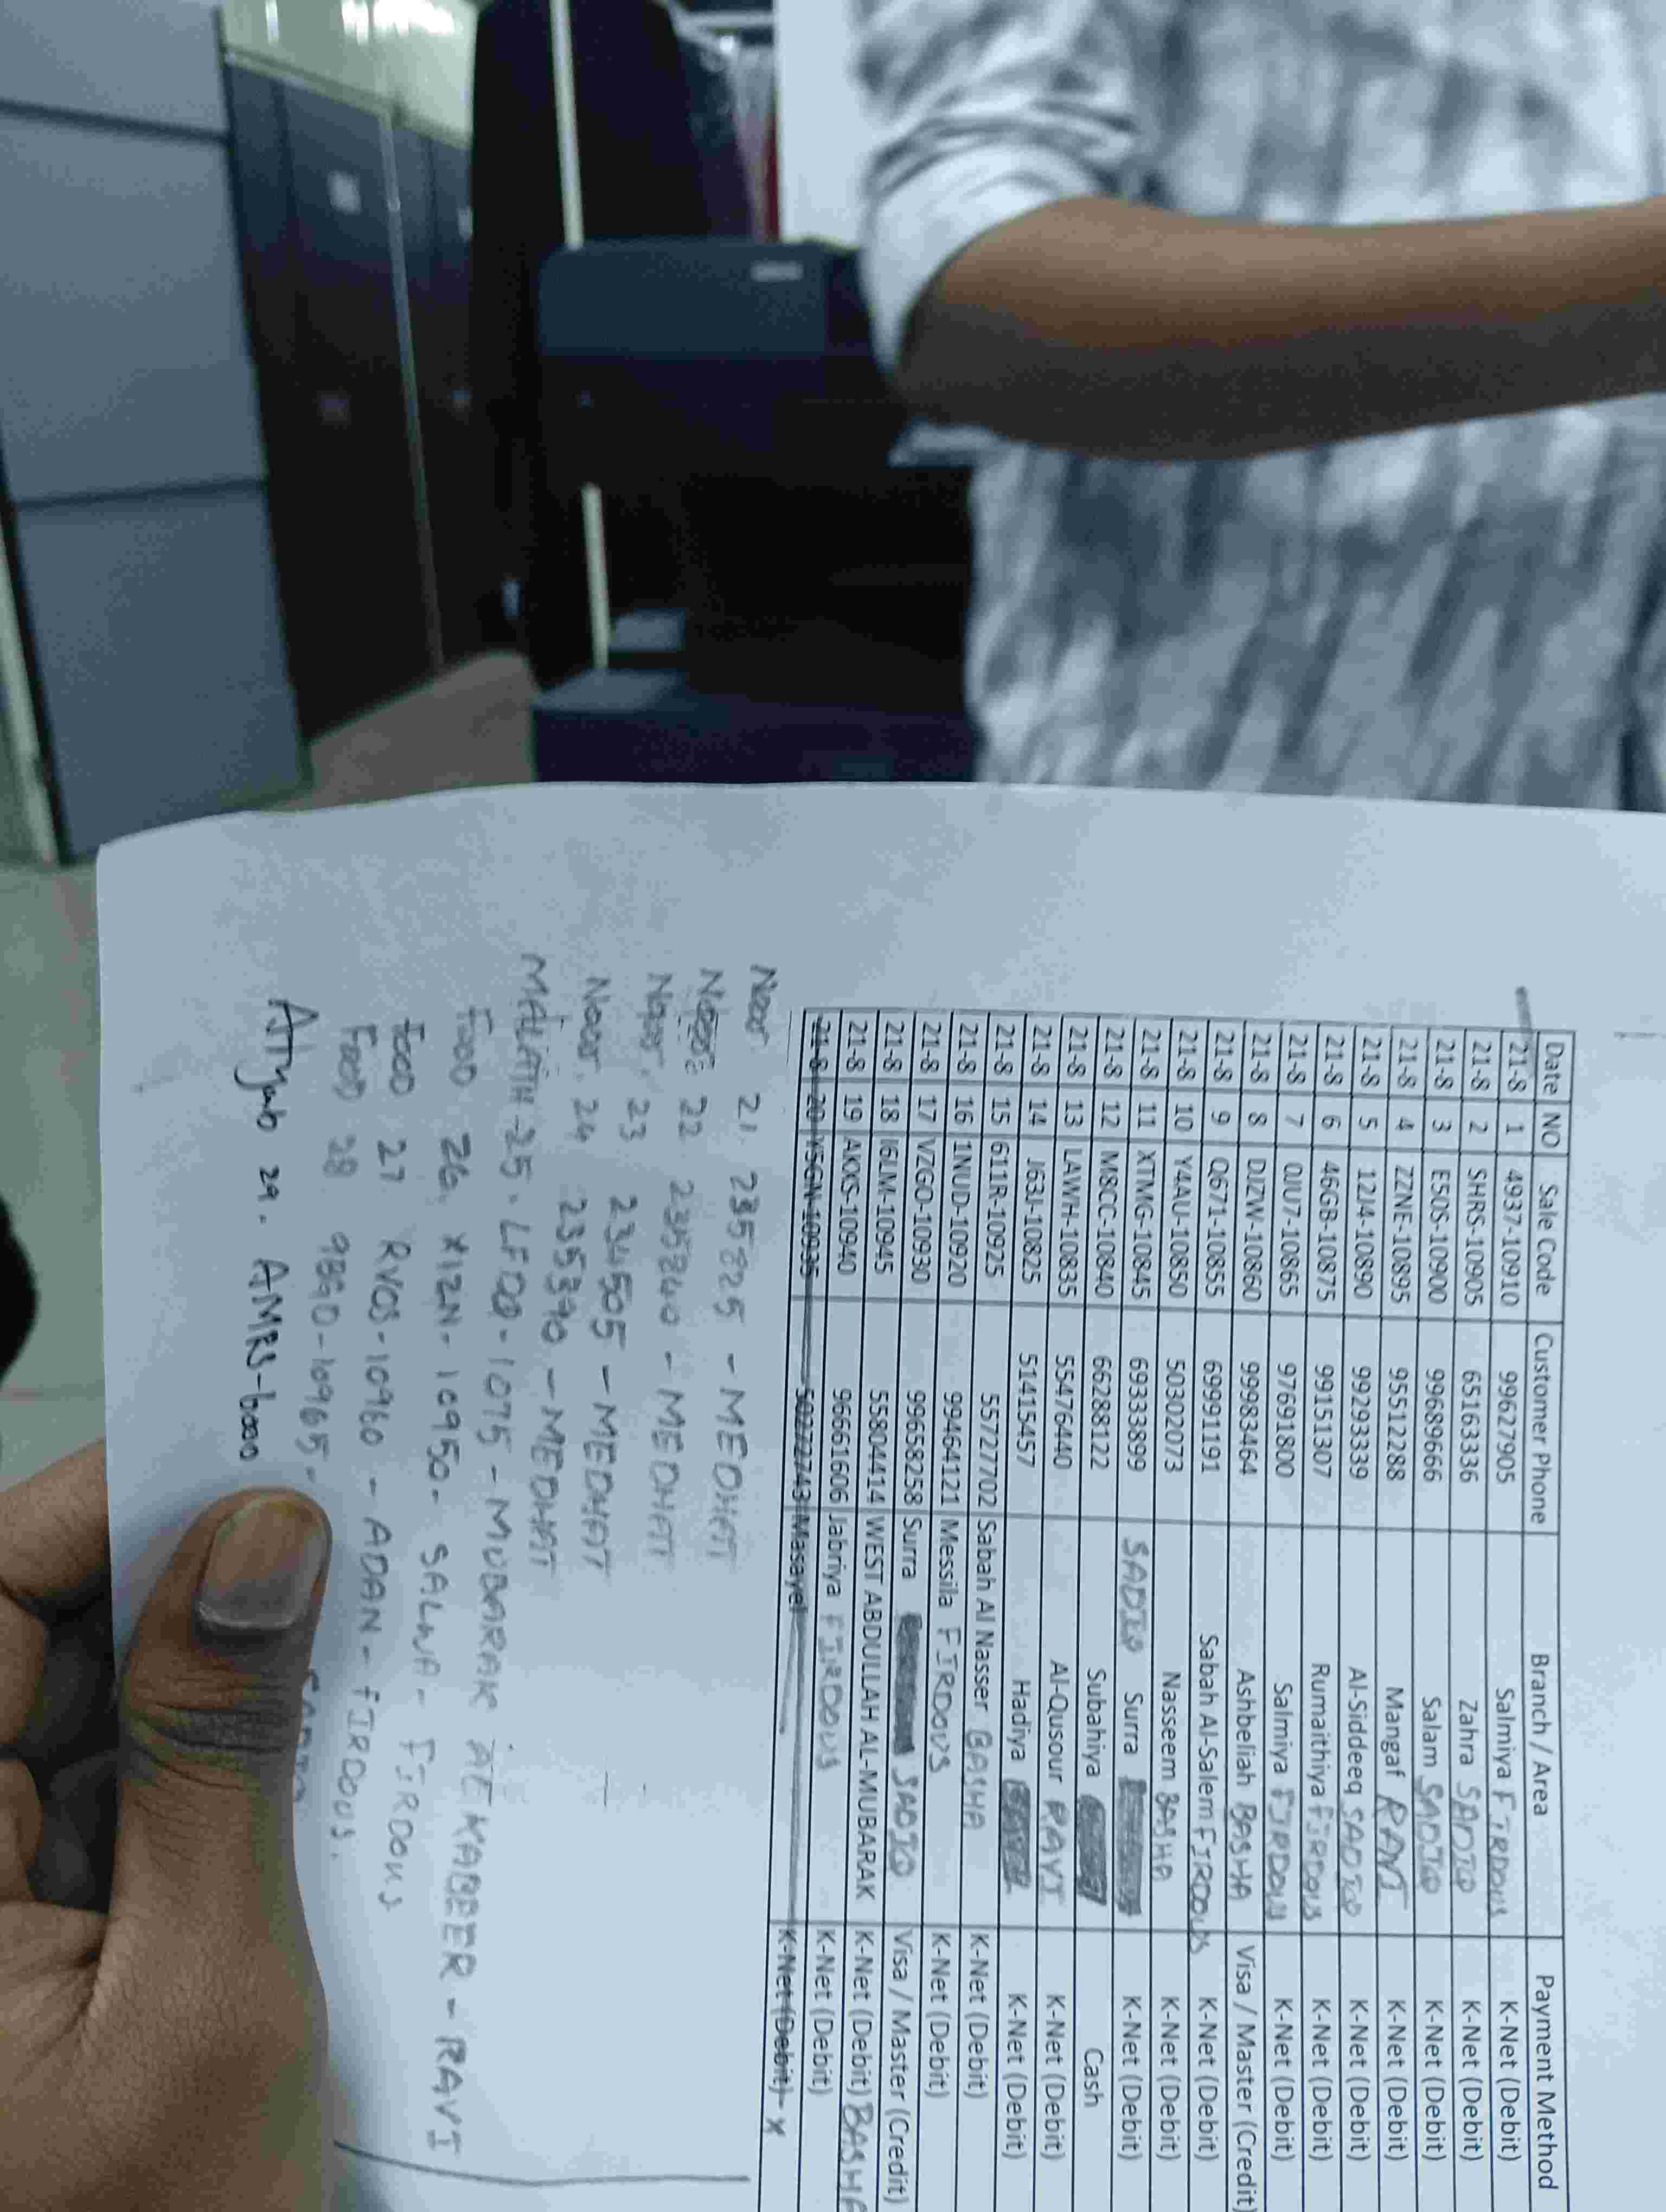 Date NO Sale Code Customer Phone Branch / Area Payment Method
21-8 1 4937-10910 99627905 Salmiya FIRDOUS K-Net (Debit)
21-8 2 SHRS-10905 65163336 Zahra SADIQ K-Net (Debit)
21-8 3 E5DS-10900 99689666 Salam SADIQ K-Net (Debit)
21-8 4 ZZNE-10895 95512288 Mangaf RAVI K-Net (Debit)
21-8 5 12J4-10890 99293339 Al-Siddeeq SADIQ K-Net (Debit)
21-8 6 46GB-10875 99151307 Rumaithiya FIRDOUS K-Net (Debit)
21-8 7 0JU7-10865 97691800 Salmiya FIRDOUS K-Net (Debit)
21-8 8 DJZW-10860 99983464 Ashbeliah BASHA Visa / Master (Credit)
21-8 9 Q671-10855 69991191 Sabah Al-Salem FIRDOUS K-Net (Debit)
21-8 10 Y4AU-10850 50302073 Nasseem BASHA K-Net (Debit)
21-8 11 XTMG-10845 69333899 SADIQ Surra K-Net (Debit)
21-8 12 M8CC-10840 66288122 Subahiya Cash
21-8 13 LAWH-10835 55476440 Al-Qusour RAVI K-Net (Debit)
21-8 14 J63J-10825 51415457 Hadiya K-Net (Debit)
21-8 15 611R-10925 55727702 Sabah Al Nasser BASHA K-Net (Debit)
21-8 16 1NUD-10920 99464121 Messila FIRDOUS K-Net (Debit)
21-8 17 VZGO-10930 99658258 Surra SADIQ Visa / Master (Credit)
21-8 18 I6LM-10945 55804414 WEST ABDULLAH AL-MUBARAK K-Net (Debit) BASHA
21-8 19 AKXS-10940 96661606 Jabriya FIRDOUS K-Net (Debit)
21-8 20 Y5GN-10935 50272743 Masayel K-Net (Debit) x
Noor 21, 235825 - MEDHAT
22 235840 - MEDHAT
Noor, 23 234505 - MEDHAT
Noor, 24 235390 - MEDHAT
MALATH-25. - MUBARAK AL KABEER - RAVI
FOOD 26, X1ZN-10950- SALWA - FIRDOUS
FOOD 27 RVOS-10960 - ADAN - FIRDOUS
FOOD 28 9B9D-10965-
29.